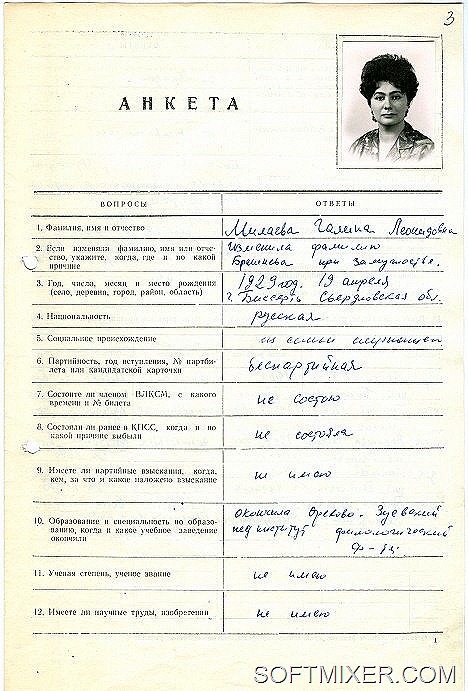 3
АНКЕТА
ВОПРОСЫ
ОТВЕТЫ
1. Фамилия, имя и отчество
Милаева Галина Леонидовна
2. Если изменяли фамилию, имя или отче-
ство, укажите, когда, где и по какой
причине
Изменила фамилию
Брежнева при замужестве.
3. Год, число, месяц и место рождения
(село, деревня, город, район, область)
1929 год. 19 апреля
г. Бисерть Свердловская обл.
4. Национальность
русская
5. Социальное происхождение
из семьи служащего
6. Партийность, год вступления, № партби-
лета или кандидатской карточки
беспартийная
7. Состоите ли членом ВЛКСМ, с какого
времени и № билета
не состою
8. Состояли ли ранее в КПСС, когда и по
какой причине выбыли
не состояла
9. Имеете ли партийные взыскания, когда,
кем, за что и какое наложено взыскание
не имею
10. Образование и специальность по образо-
ванию, когда и какое учебное заведение
окончили
окончила Орехово-Зуевский
пединститут филологический
ф-т
11. Ученая степень, ученое звание
не имею
12. Имеете ли научные труды, изобретения
не имею
1
SOFTMIXER.COM